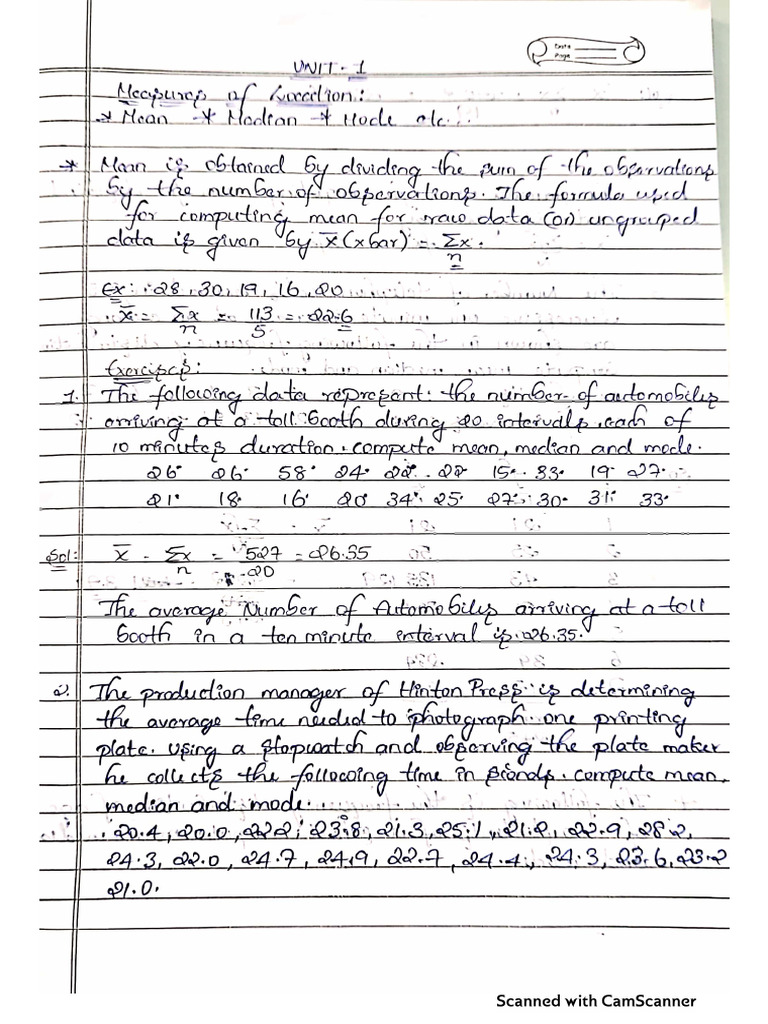 Date
Page
UNIT - 1
Measures of Location:
* Mean * Median * Mode etc..
* Mean is obtained by dividing the sum of the observations
by the number of observations. The formula used
for computing mean for raw data (or) ungrouped
data is given by x̅ (x bar) = Σx
n
Ex: 28, 30, 19, 16, 20
x̅ = Σx = 113 = 22.6
n 5
Exercises:
1. The following data represent the number of automobiles
arriving at a toll booth during 20 intervals, each of
10 minutes duration. compute mean, median and mode.
26 26 58 24 22 22 15 33 19 27
21 18 16 20 34 25 27 30 31 33
Sol: x̅ - Σx = 527 = 26.35
n 20
The average Number of Automobiles arriving at a toll
booth in a ten minute interval is 26.35.
2. The production manager of Hinton Press is determining
the average time needed to photograph one printing
plate. using a stopwatch and observing the plate maker
he collects the following time in seconds. compute mean,
median and mode.
20.4, 20.0, 22.2, 23.8, 21.3, 25.1, 21.2, 22.9, 28.2,
24.3, 22.0, 24.7, 24.9, 22.7, 24.4, 24.3, 23.6, 23.2
21.0.
Scanned with CamScanner